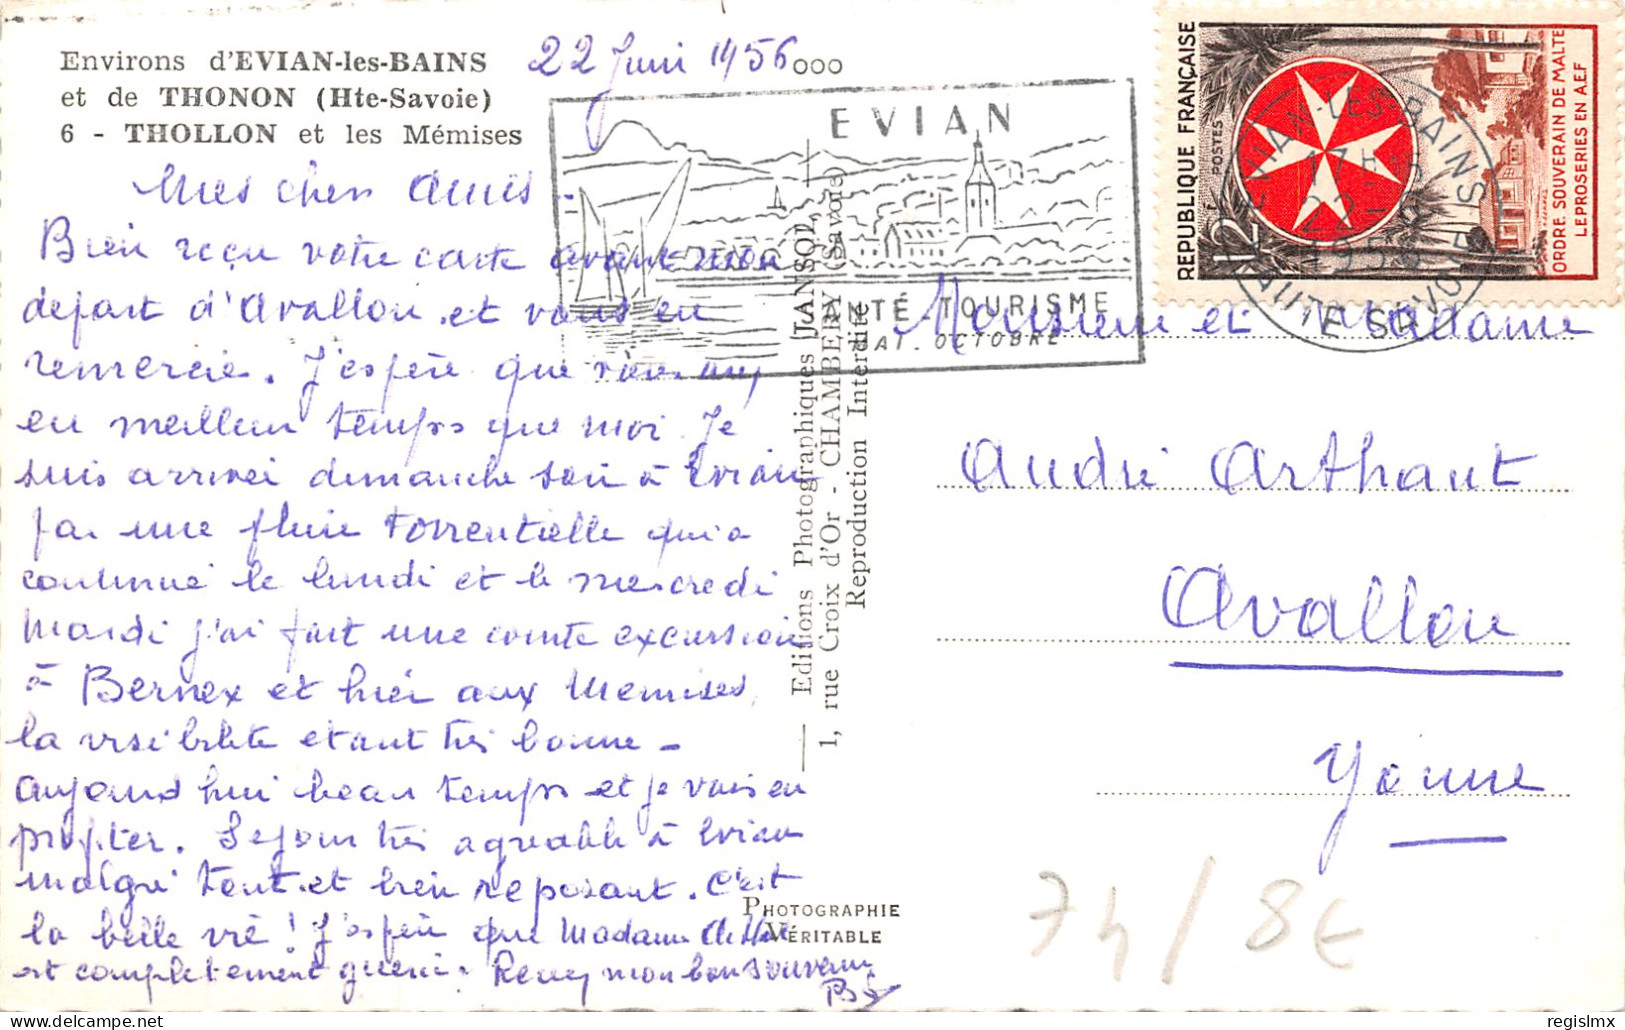 Environs d'EVIAN-les-BAINS
et de THONON (Hte-Savoie)
6 - THOLLON et les Mémises
22 Juin 1956
Mes chers Amis -
Bien reçu votre carte avant mon
depart d'Avallon et vous en
remercie. J'espère que vous avez
eu meilleur temps que moi. Je
suis arrivée dimanche soir à Evian
par une pluie torrentielle qui a
continué le lundi et le mercredi
Mardi j'ai fait une courte excursion
à Bernex et hier aux Mémises,
la visibilité étant très bonne -
aujourd'hui beau temps et je vais en
profiter. Sejour très agréable à Evian
malgré tout et bien reposant. C'est
la belle vie ! J'espère que Madame
est complètement guérie. mon bon souvenir
EVIAN
TOURISME
OCTOBRE
Editions Photographiques JANSOL,
1, rue Croix d'Or - CHAMBERY (Savoie)
Reproduction Interdite
PHOTOGRAPHIE
VÉRITABLE
REPUBLIQUE FRANÇAISE
POSTES
12F
ORDRE SOUVERAIN DE MALTE
LEPROSERIES EN A.E.F
EVIAN-LES-BAINS
17H15
22-6
1956
HAUTE SAVOIE
Monsieur et Madame
André Arthaut
Avallon
Yonne
74/8€
regislmx